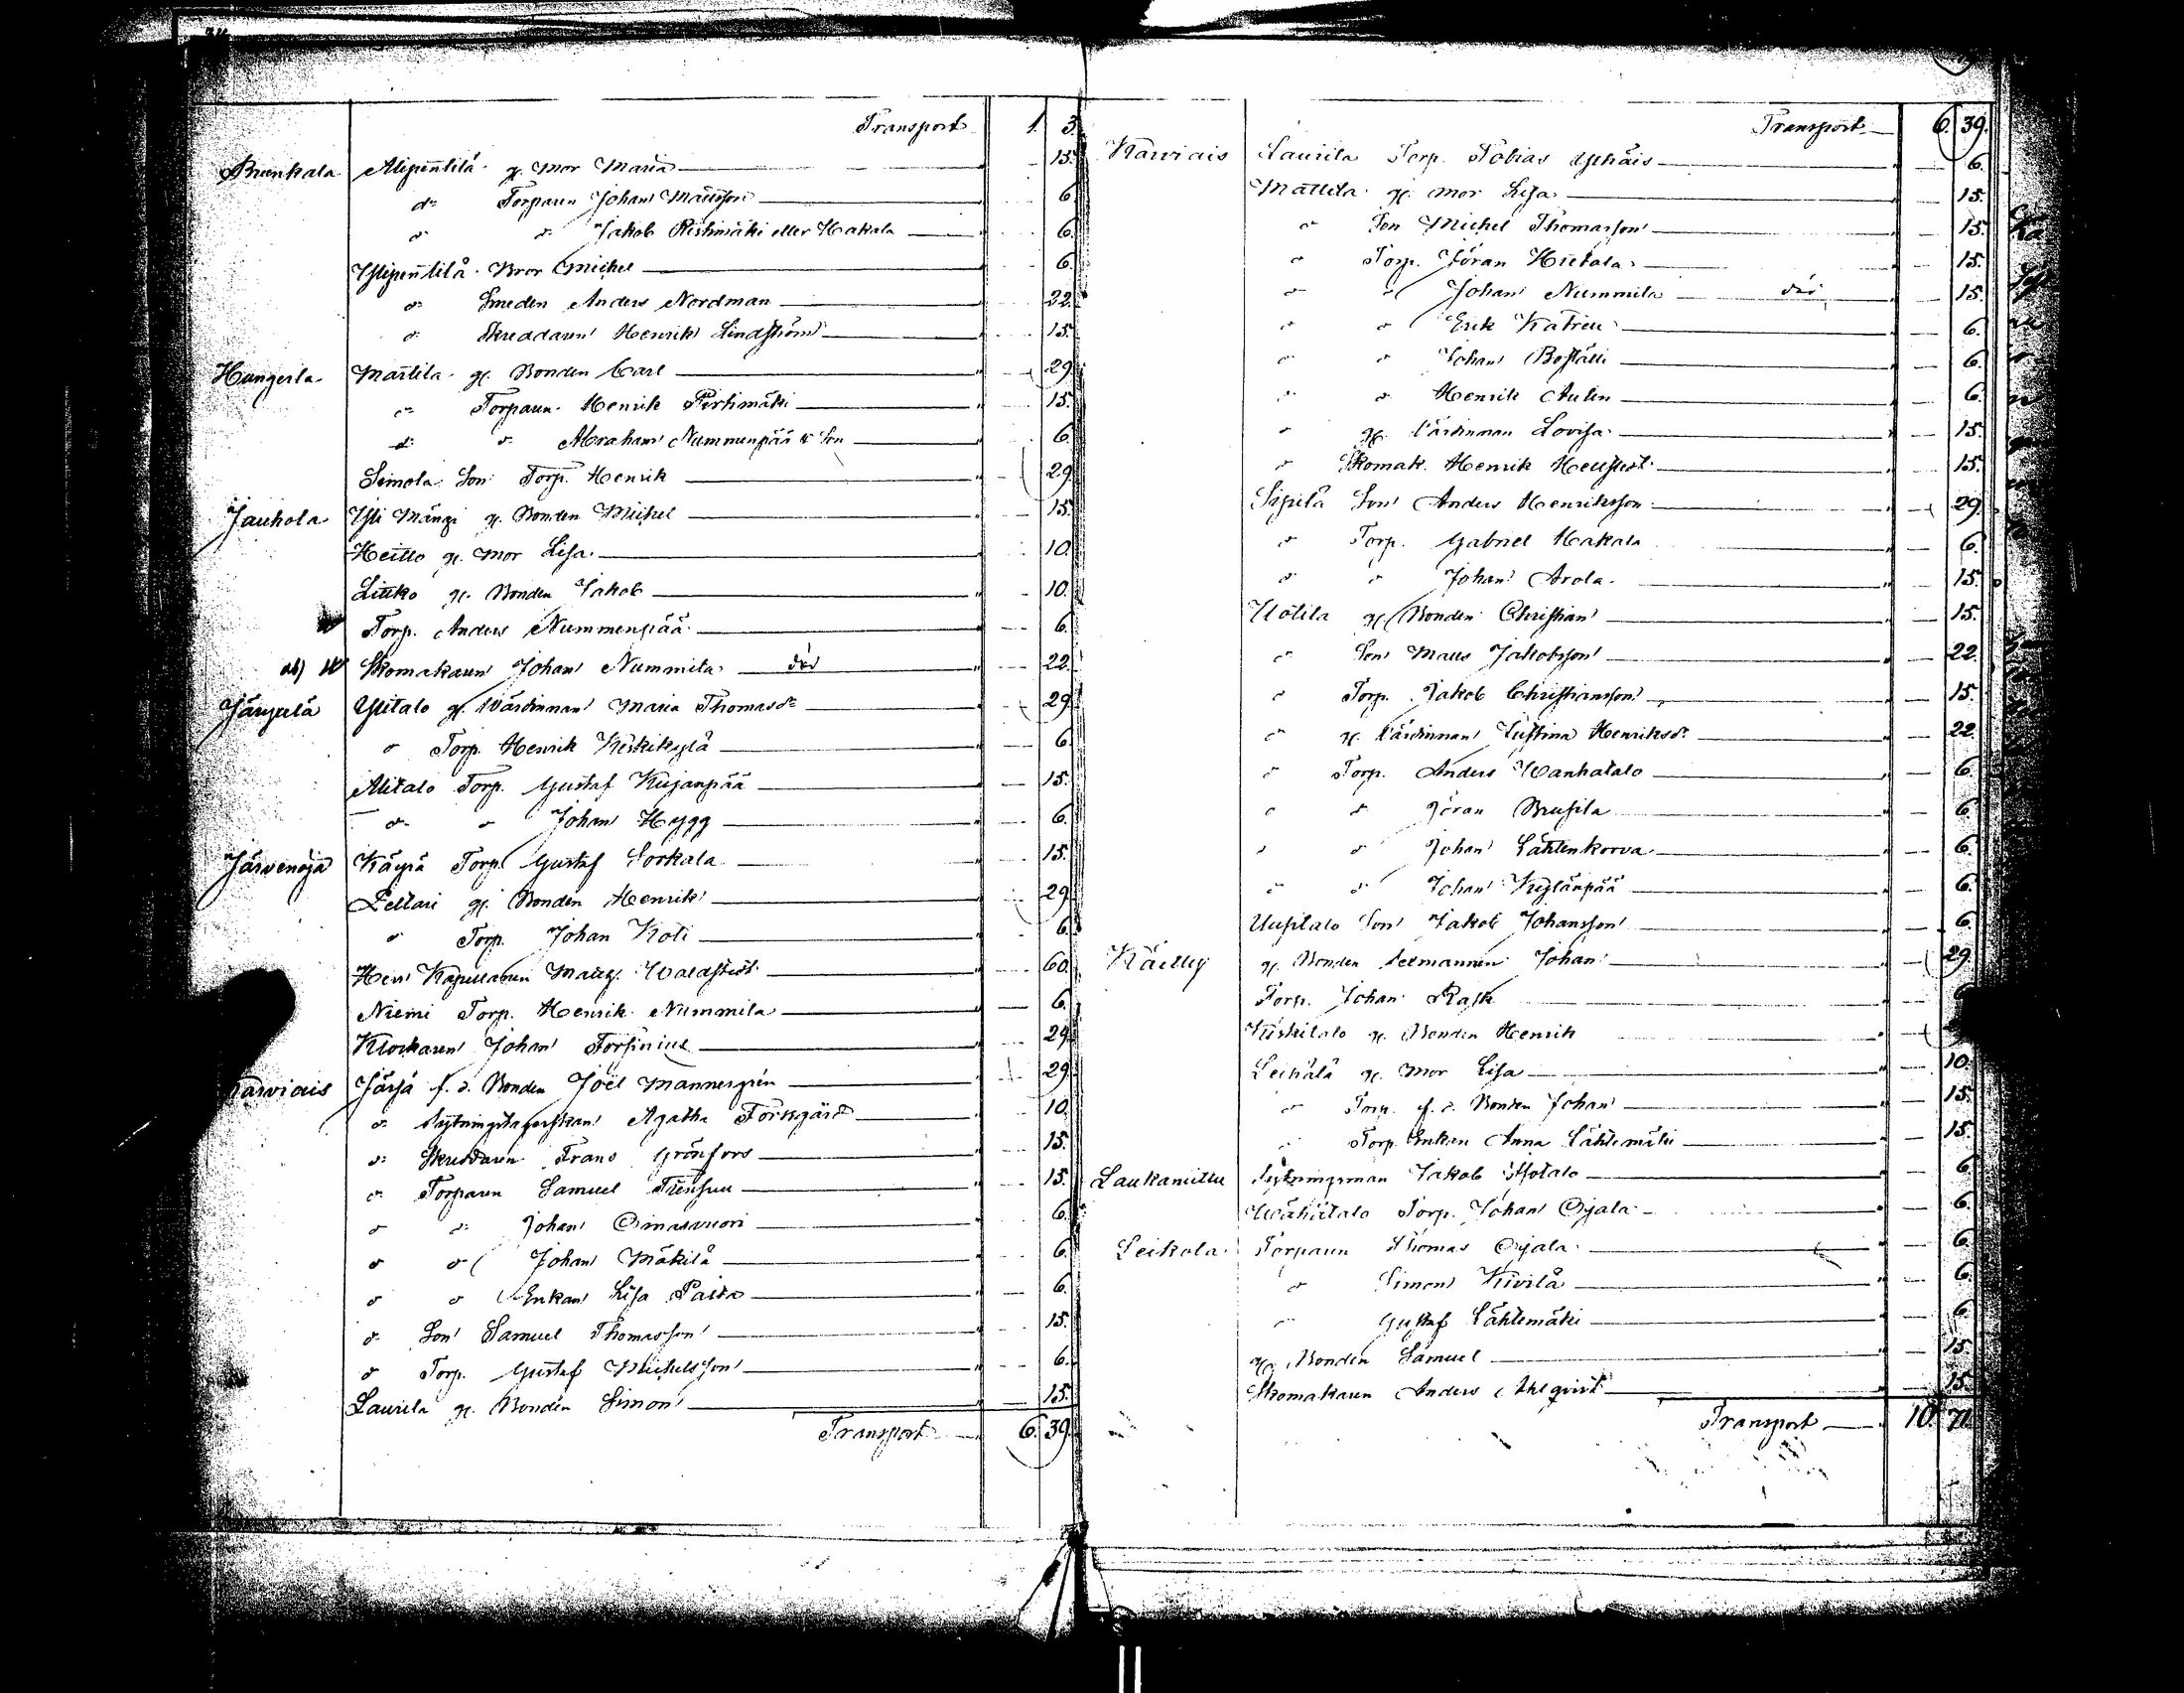 Transport 1. 3.
Prunkala Alipentilä g. mor Maria 15.
d:o Torparen Johan Mattsson 6.
d:o d:o Jakob Ristimäki eller Hakala 6.
Ylipentilä Bror Michel 6.
d:o Smeden Anders Nordman 22.
d:o Skreddaren Henrik Lindström 15.
Hungerla Marttila g. Bonden Carl 29.
d:o Torparen Henrik Perhimäki 15.
d:o d:o Abraham Nummenpää & Son 6.
Simola Son Torp. Henrik 29.
Jauhola Yli Mängi g. Bonden Michel 15.
Heitto g. mor Lisa 10.
Liuko g. Bonden Jakob 10.
Torp. Anders Nummenpää 6.
Skomakaren Johan Nummila död 22.
Järppilä Ylitalo g. Wärdinnan Maria Thomasd:r 29.
d:o Torp. Henrik Keskikylä 6.
Alitalo Torp. Gustaf Kujanpää 15.
d:o d:o Johan Hygg 6.
Järvenoja Käyrä Torp. Gustaf Sorkala 15.
Pettari g. Bonden Henrik 29.
d:o Torp. Johan Koti 6.
Herr Kapellanen Matts. Waldstedt 60.
Niemi Torp. Henrik Nummila 6.
Klockaren Johan Forsinius 29.
Karviais Järjä f. d. Bonden Joël Mannergren 29.
d:o Sytningstagerskan Agatha Forssgård 10.
d:o Skreddaren Frans Grönfors 15.
d:o Torparen Samuel Friisuu 15.
d:o d:o Johan Oinasvuori 6.
d:o d:o Johan Mäkilä 6.
d:o d:o Enkan Lisa Paita 6.
d:o Son Samuel Thomasson 15.
d:o Torp. Gustaf Michelsson 6.
Laurila g. Bonden Simon 15.
Transport 6. 39.
Transport 6. 39.
Karviais Laurila Torp. Tobias 6.
Mattila g. mor Lisa 15.
d:o Son Michel Thomasson 15.
d:o Torp. Jöran Hietala 15.
d:o d:o Johan Nummila död 15.
d:o d:o Erik Katren 6.
d:o d:o Johan 6.
d:o d:o Henrik Aulen 6.
d:o g. Värdinnan Lovisa 15.
d:o Skomak. Henrik Hellstedt 15.
Sipilä Son Anders Henriksson 29.
d:o Torp. Gabriel Hakala 6.
d:o d:o Johan Arola 15.
Uotila g. Bonden Christian 15.
d:o Son Matts Jakobsson 22.
d:o Torp. Jakob Christiansson 15.
d:o g. Värdinnan Justina Henriksd:r 22.
d:o Torp. Anders Wanhatalo 6.
d:o d:o Jöran Brusila 6.
d:o d:o Johan Lähtenkorva 6.
d:o d:o Johan Kylänpää 6.
Uusitalo Son Jakob Johansson 6.
Käetty g. Bonden Johan 29.
Torp. Johan Rask
Keskitalo g. Bonden Henrik
Leikälä g. mor Lisa 10.
d:o Torp. f. d. Bonden Johan 15.
d:o Torp. Enkan Anna Lähtemäki 15.
Laukamittu Sytningsman Jakob Isotalo 6.
Wähätalo Torp. Johan Ojala 6.
Leikola Torparen Thomas Ojala 6.
d:o Simon Kivilä 6.
d:o Gustaf Lähtemäki 6.
g. Bonden Samuel 15.
Skomakaren Anders Ahlqvist 15.
Transport 10. 71.